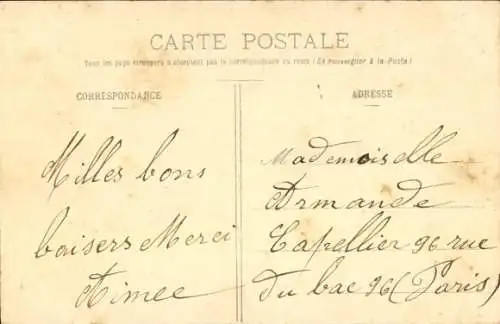 CARTE POSTALE
Tous les pays étrangers n'acceptent pas la correspondance au recto (Se renseigner à la Poste)
CORRESPONDANCE
ADRESSE
Milles bons
baisers Merci
Aimee
Mademoiselle
Armande
Capellier 96 rue
du bac 96 (Paris)